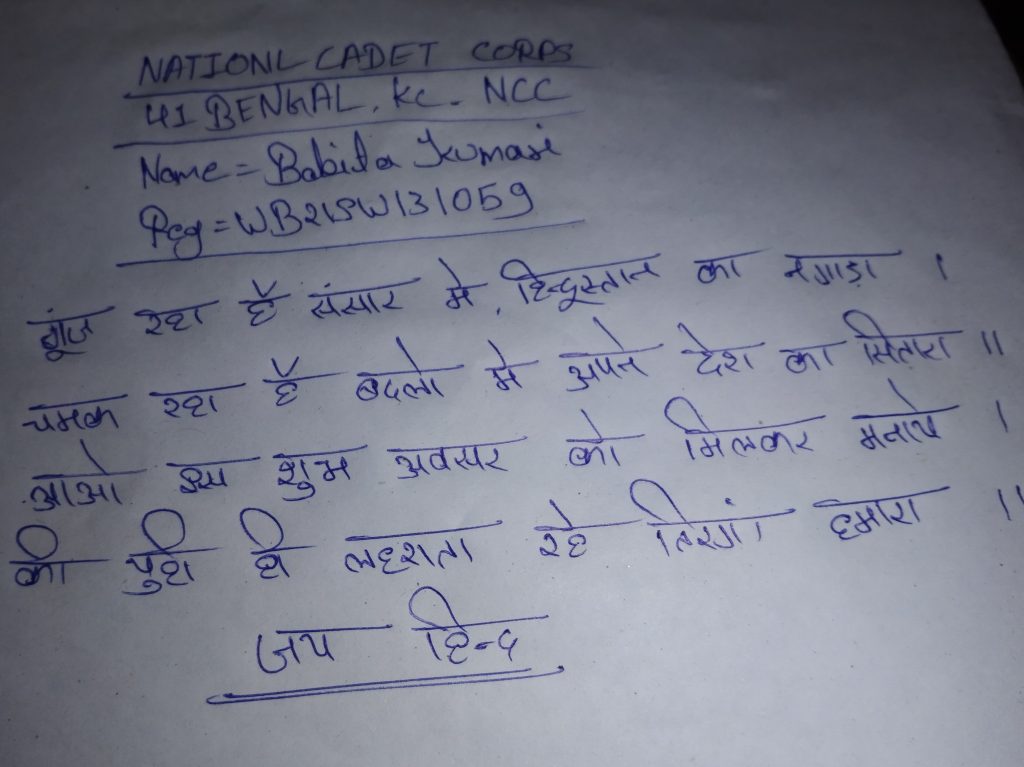 NATIONL CADET CORPS
41 BENGAL. KC. NCC
Name = Babita Kumari
Reg = WB21SW131059
गूंज रहा हैं संसार मे, हिन्दूस्तान का नगाड़ा ।
चमक रहा हैं बदलो मे अपने देश का सितारा ॥
आओ इस शुभ अवसर को मिलकर मनाये ।
की युही ही लहराता रहे तिरगां हमारा ॥
जय हिन्द